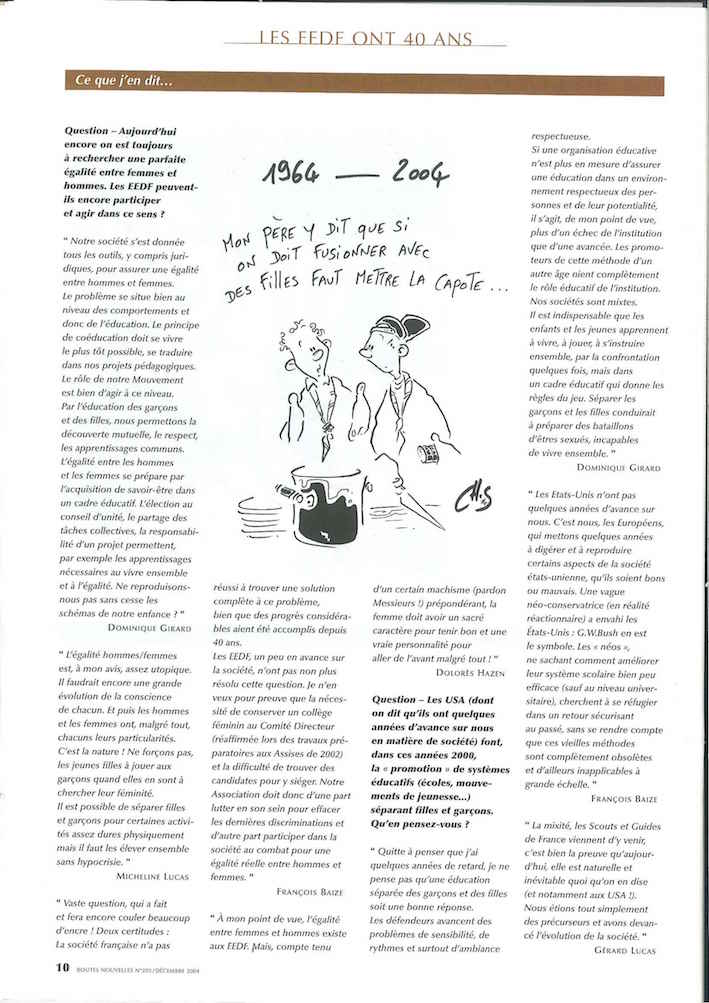 LES EEDF ONT 40 ANS
Ce que j'en dit...
Question – Aujourd'hui
encore on est toujours
à rechercher une parfaite
égalité entre femmes et
hommes. Les EEDF peuvent-
ils encore participer
et agir dans ce sens ?
" Notre société s'est donnée
tous les outils, y compris juri-
diques, pour assurer une égalité
entre hommes et femmes.
Le problème se situe bien au
niveau des comportements et
donc de l'éducation. Le principe
de coéducation doit se vivre
le plus tôt possible, se traduire
dans nos projets pédagogiques.
Le rôle de notre Mouvement
est bien d'agir à ce niveau.
Par l'éducation des garçons
et des filles, nous permettons la
découverte mutuelle, le respect,
les apprentissages communs.
L'égalité entre les hommes
et les femmes se prépare par
l'acquisition de savoir-être dans
un cadre éducatif. L'élection au
conseil d'unité, le partage des
tâches collectives, la responsabi-
lité d'un projet permettent,
par exemple les apprentissages
nécessaires au vivre ensemble
et à l'égalité. Ne reproduisons-
nous pas sans cesse les
schémas de notre enfance ? "
DOMINIQUE GIRARD
" L'égalité hommes/femmes
est, à mon avis, assez utopique.
Il faudrait encore une grande
évolution de la conscience
de chacun. Et puis les hommes
et les femmes ont, malgré tout,
chacuns leurs particularités.
C'est la nature ! Ne forçons pas,
les jeunes filles à jouer aux
garçons quand elles en sont à
chercher leur féminité.
Il est possible de séparer filles
et garçons pour certaines activi-
tés assez dures physiquement
mais il faut les élever ensemble
sans hypocrisie. "
MICHELINE LUCAS
" Vaste question, qui a fait
et fera encore couler beaucoup
d'encre ! Deux certitudes :
La société française n'a pas
1964 — 2004
MON PÈRE Y DIT QUE SI
ON DOIT FUSIONNER AVEC
DES FILLES FAUT METTRE LA CAPOTE ...
CH.S
réussi à trouver une solution
complète à ce problème,
bien que des progrès considéra-
bles aient été accomplis depuis
40 ans.
Les EEDF, un peu en avance sur
la société, n'ont pas non plus
résolu cette question. Je n'en
veux pour preuve que la néces-
sité de conserver un collège
féminin au Comité Directeur
(réaffirmée lors des travaux pré-
paratoires aux Assises de 2002)
et la difficulté de trouver des
candidates pour y siéger. Notre
Association doit donc d'une part
lutter en son sein pour effacer
les dernières discriminations et
d'autre part participer dans la
société au combat pour une
égalité réelle entre hommes et
femmes. "
FRANÇOIS BAIZE
" À mon point de vue, l'égalité
entre femmes et hommes existe
aux EEDF. Mais, compte tenu
d'un certain machisme (pardon
Messieurs !) prépondérant, la
femme doit avoir un sacré
caractère pour tenir bon et une
vraie personnalité pour
aller de l'avant malgré tout ! "
DOLORÈS HAZEN
Question – Les USA (dont
on dit qu'ils ont quelques
années d'avance sur nous
en matière de société) font,
dans ces années 2000,
la « promotion » de systèmes
éducatifs (écoles, mouve-
ments de jeunesse...)
séparant filles et garçons.
Qu'en pensez-vous ?
" Quitte à penser que j'ai
quelques années de retard, je ne
pense pas qu'une éducation
séparée des garçons et des filles
soit une bonne réponse.
Les défendeurs avancent des
problèmes de sensibilité, de
rythmes et surtout d'ambiance
respectueuse.
Si une organisation éducative
n'est plus en mesure d'assurer
une éducation dans un environ-
nement respectueux des per-
sonnes et de leur potentialité,
il s'agit, de mon point de vue,
plus d'un échec de l'institution
que d'une avancée. Les promo-
teurs de cette méthode d'un
autre âge nient complètement
le rôle éducatif de l'institution.
Nos sociétés sont mixtes.
Il est indispensable que les
enfants et les jeunes apprennent
à vivre, à jouer, à s'instruire
ensemble, par la confrontation
quelques fois, mais dans
un cadre éducatif qui donne les
règles du jeu. Séparer les
garçons et les filles conduirait
à préparer des bataillons
d'êtres sexués, incapables
de vivre ensemble. "
DOMINIQUE GIRARD
" Les Etats-Unis n'ont pas
quelques années d'avance sur
nous. C'est nous, les Européens,
qui mettons quelques années
à digérer et à reproduire
certains aspects de la société
états-unienne, qu'ils soient bons
ou mauvais. Une vague
néo-conservatrice (en réalité
réactionnaire) a envahi les
États-Unis : G.W.Bush en est
le symbole. Les « néos »,
ne sachant comment améliorer
leur système scolaire bien peu
efficace (sauf au niveau univer-
sitaire), cherchent à se réfugier
dans un retour sécurisant
au passé, sans se rendre compte
que ces vieilles méthodes
sont complètement obsolètes
et d'ailleurs inapplicables à
grande échelle. "
FRANÇOIS BAIZE
" La mixité, les Scouts et Guides
de France viennent d'y venir,
c'est bien la preuve qu'aujour-
d'hui, elle est naturelle et
inévitable quoi qu'on en dise
(et notamment aux USA !).
Nous étions tout simplement
des précurseurs et avons devan-
cé l'évolution de la société. "
GÉRARD LUCAS
10 ROUTES NOUVELLES N°205/DÉCEMBRE 2004